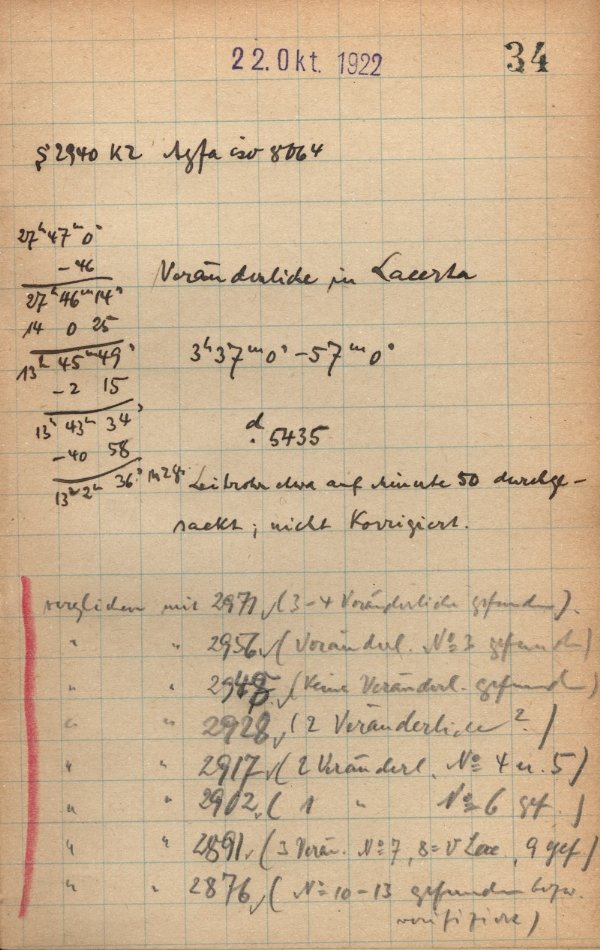 22. Okt. 1922
34
S 2940 K2 Agfa iso 8064
27ʰ47ᵐ0ˢ
-46
27ʰ46ᵐ14ˢ
14 0 25
13ʰ45ᵐ49ˢ
-2 15
13ʰ 43ᵐ 34ˢ
-40 58
13ʰ 2ᵐ 36ˢ
Veränderliche in Lacerta
3ʰ37ᵐ0ˢ-57ᵐ0ˢ
ᵈ.5435
Leitrohr etwa auf Minute 50 durchge-
sackt; nicht Korrigiert.
verglichen mit 2971 (3-4 Veränderliche gefunden).
" " 2956 (Veränderl. Nº 3 gefunden)
" " 2948 (Keine Veränderl. gefunden)
" " 2928 (2 Veränderliche ?)
" " 2917 (2 Veränderl. Nº 4 u. 5)
" " 2902 ( 1 " Nº 6 gef.)
" " 2891 (3 Verän. Nº 7, 8=V Lac, 9 gef)
" " 2876 (Nº 10-13 gefunden bezw.
verifiziert)